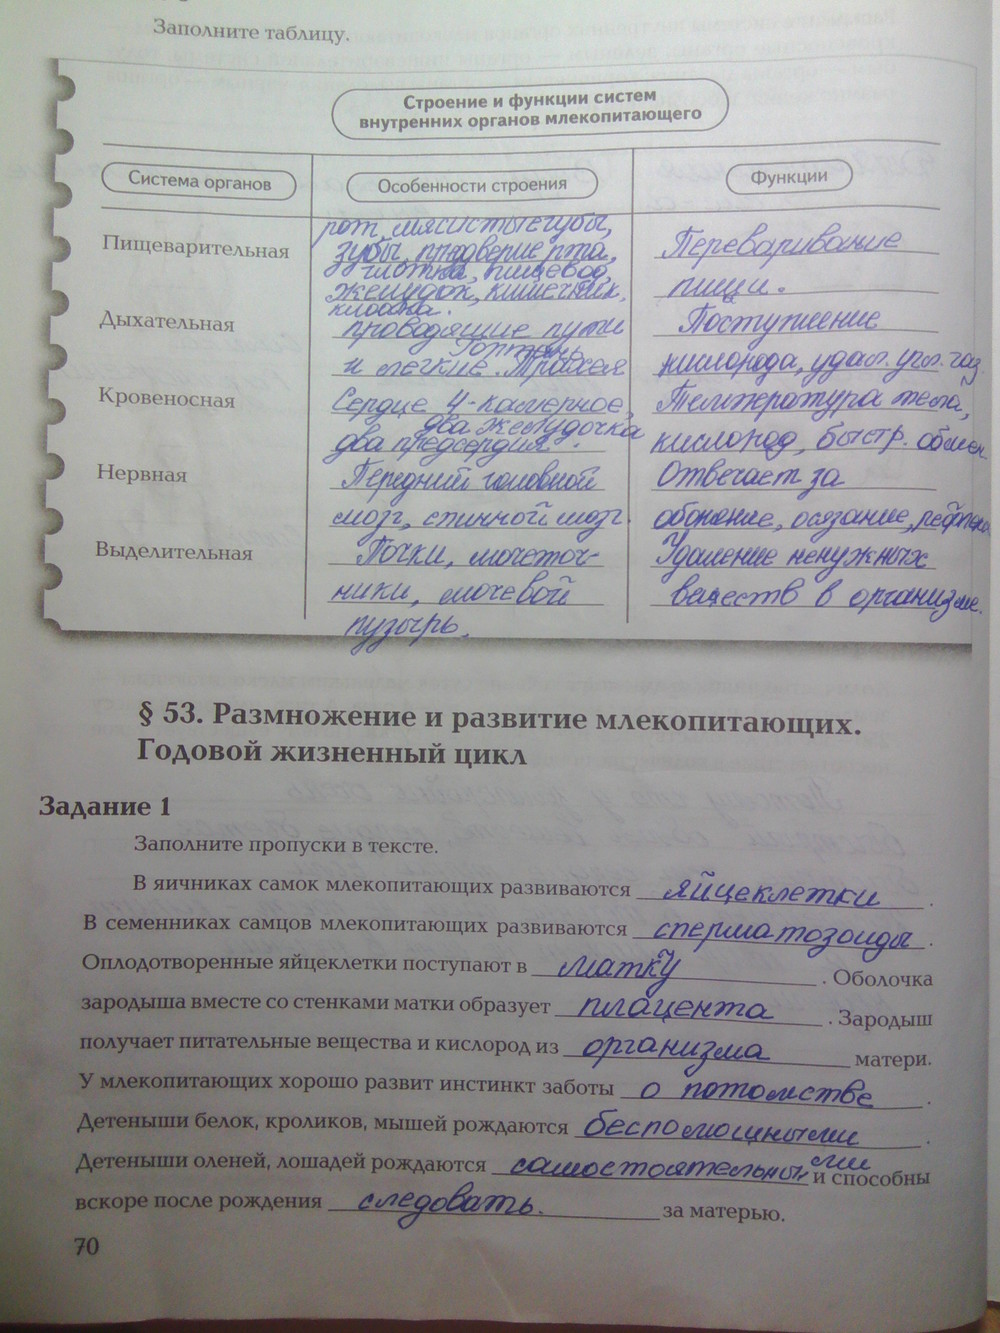 Заполните таблицу.
Строение и функции систем
внутренних органов млекопитающего
Система органов
Особенности строения
Функции
Пищеварительная
рот, мясистые губы,
зубы, преддверие рта,
глотка, пищевод,
желудок, кишечник,
клоака.
Переваривание
пищи.
Дыхательная
проводящие пути
Гортань
и легкие. Трахея
Поступление
кислорода, удал. угл. газ
Кровеносная
Сердце 4-камерное,
два желудочка
два предсердия.
Температура тела,
кислород, быстр. обмен
Нервная
Передний головной
мозг, спинной мозг.
Отвечает за
обоняние, осязание,
Выделительная
Почки, мочеточ-
ники, мочевой
пузырь.
Удаление ненужных
веществ в организме.
§ 53. Размножение и развитие млекопитающих.
Годовой жизненный цикл
Задание 1
Заполните пропуски в тексте.
В яичниках самок млекопитающих развиваются яйцеклетки.
В семенниках самцов млекопитающих развиваются сперматозоиды.
Оплодотворенные яйцеклетки поступают в матку. Оболочка
зародыша вместе со стенками матки образует плацента. Зародыш
получает питательные вещества и кислород из организма матери.
У млекопитающих хорошо развит инстинкт заботы о потомстве.
Детеныши белок, кроликов, мышей рождаются беспомощными.
Детеныши оленей, лошадей рождаются самостоятельными и способны
вскоре после рождения следовать. за матерью.
70